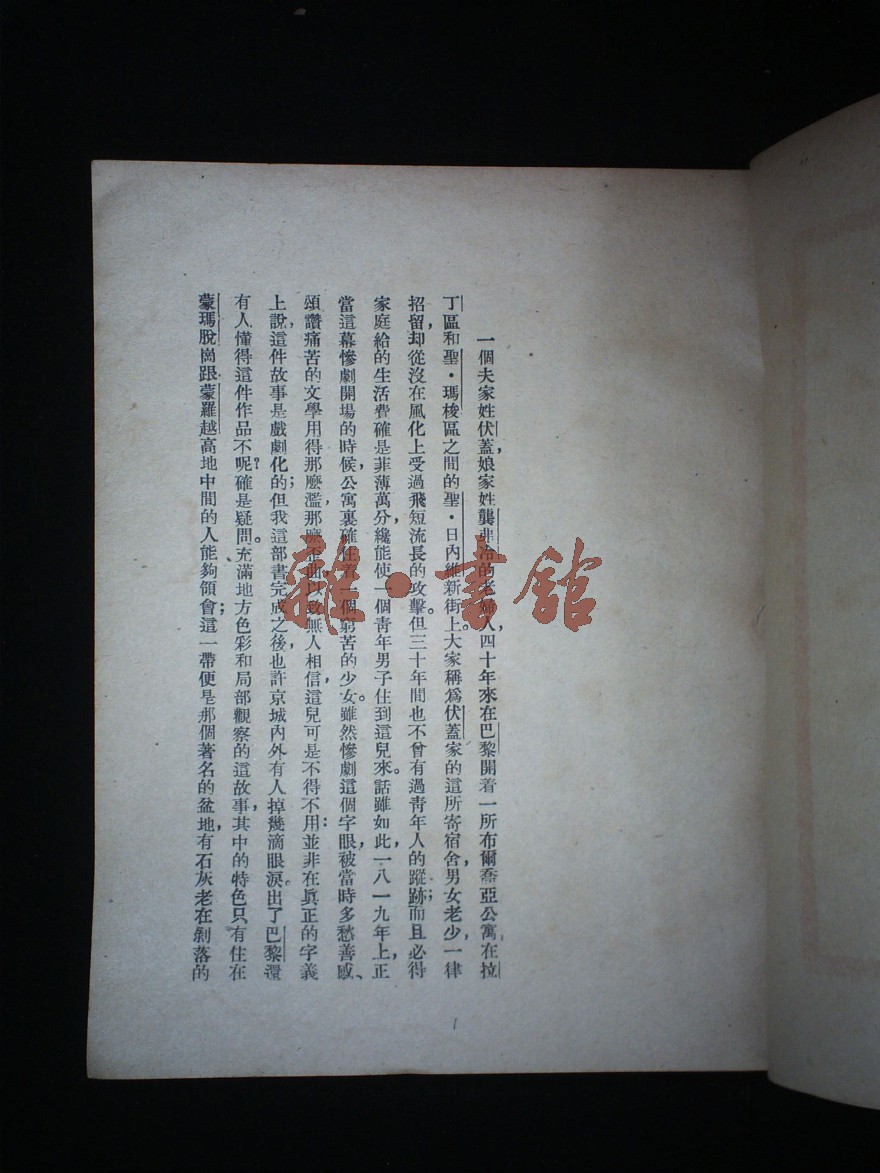 一個夫家姓伏蓋，娘家姓龔非冷的老婦人，四十年來在巴黎開着一所布爾喬亞公寓，在拉
丁區和聖·瑪梭區之間的聖·日內維新街上。大家稱爲伏蓋家的這所寄宿舍，男女老少，一律
招留，却從沒在風化上受過飛短流長的攻擊。但三十年間也不曾有過靑年人的蹤跡；而且必得
家庭給的生活費確是菲薄萬分，纔能使一個靑年男子住到這兒來。話雖如此，一八一九年上，正
當這幕慘劇開場的時候，公寓裏確住着一個窮苦的少女。雖然慘劇這個字眼，被當時多愁善感、
頌讚痛苦的文學用得那麼濫，那麼歪曲，以致無人相信，這兒可是不得不用：並非在眞正的字義
上說，這件故事是戲劇化的；但我這部書完成之後，也許京城內外有人掉幾滴眼淚。出了巴黎還
有人懂得這件作品不呢？確是疑問。充滿地方色彩和局部觀察的這故事，其中的特色，只有住在
蒙瑪脫崗跟蒙羅越高地中間的人能夠領會；這一帶便是那個著名的盆地，有石灰老在剝落的
1
雜·書館